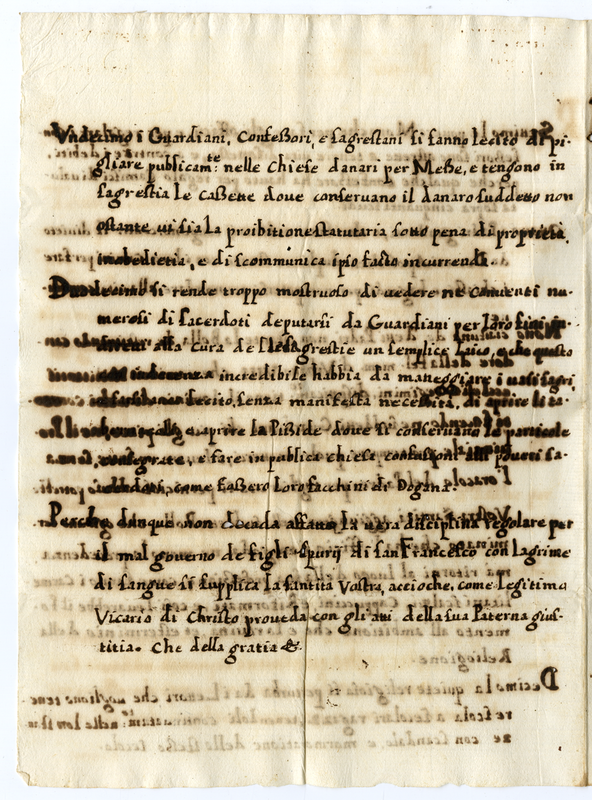 Undecimo i Guardiani, Confessori, e sagrestani si fanno lecito di pi-
gliare publicam.te nelle chiese danari per Messe, e tengono in
sagrestia le cassette dove conservano il danaro suddetto non
ostante vi sia la proibitione statutaria sotto pena di proprietà,
inobedietia, e di scommunica ipso facto incurrenda.
Duodecimo si rende troppo mostruoso di vedere ne conventi nu-
merosi di sacerdoti deputarsi da Guardiani per loro fini
alla cura delle sagrestie un semplice laico, e che questo
indecenza incredibile habbia da maneggiare i vasi sagri
lecito, senza manifesta necessità, di aprire li ta-
aprire la Pisside dove si conservano le particole
consegrate, e fare in publica chiesa
come fassero loro facchini di Dogana.
Perche dunque non decada affatto la vera disciplina regolare per
il mal governo de figli spurij di san Francesco con lagrime
di sangue si supplica la santità Vostra, accioche, come legitimo
Vicario di Christo proveda con gli atti della sua Paterna gius-
titia. Che della gratia &.